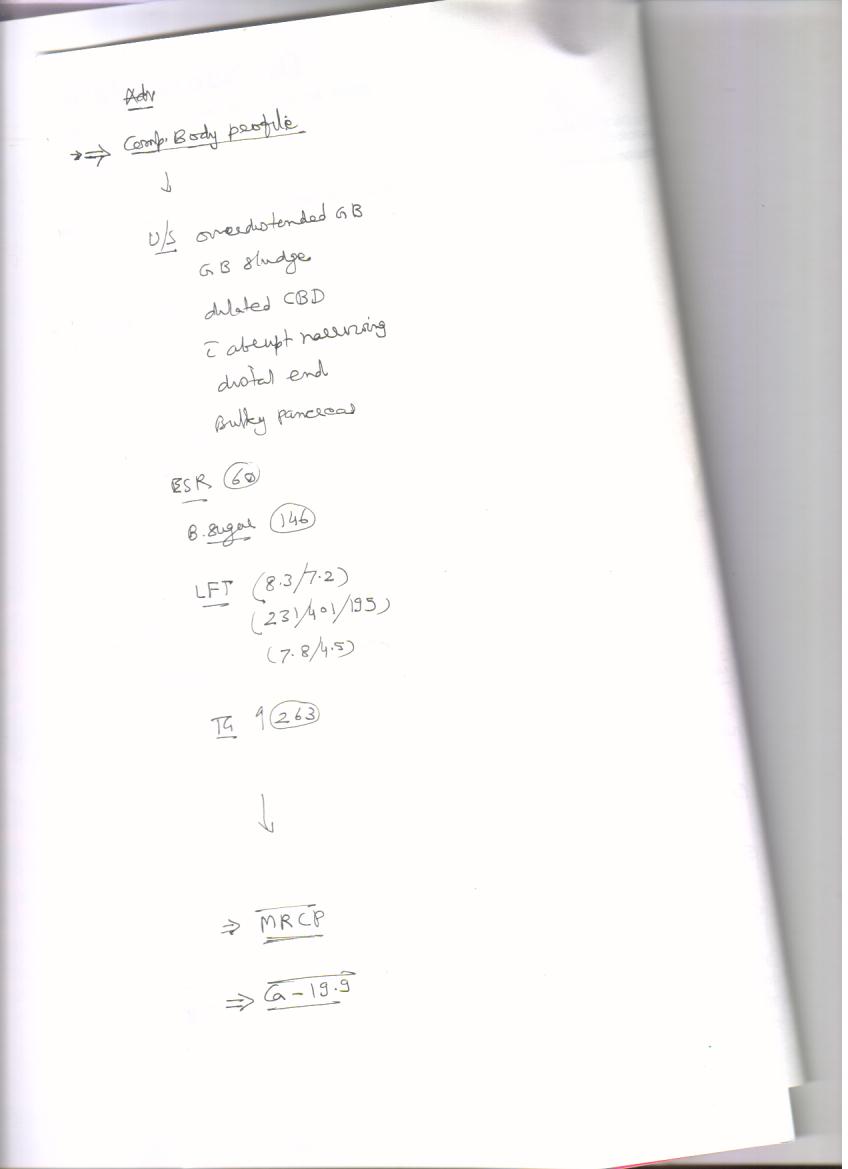 Adv
⇒ Comp. Body profile
↓
U/S overdistended GB
GB sludge
dilated CBD
c̄ abrupt narrowing
distal end
Bulky pancreas
ESR 60
B. Sugar 146
LFT (8.3/7.2)
(231/401/195)
(7.8/4.5)
TG ↑ 263
↓
⇒ MRCP
⇒ Ca-19.9